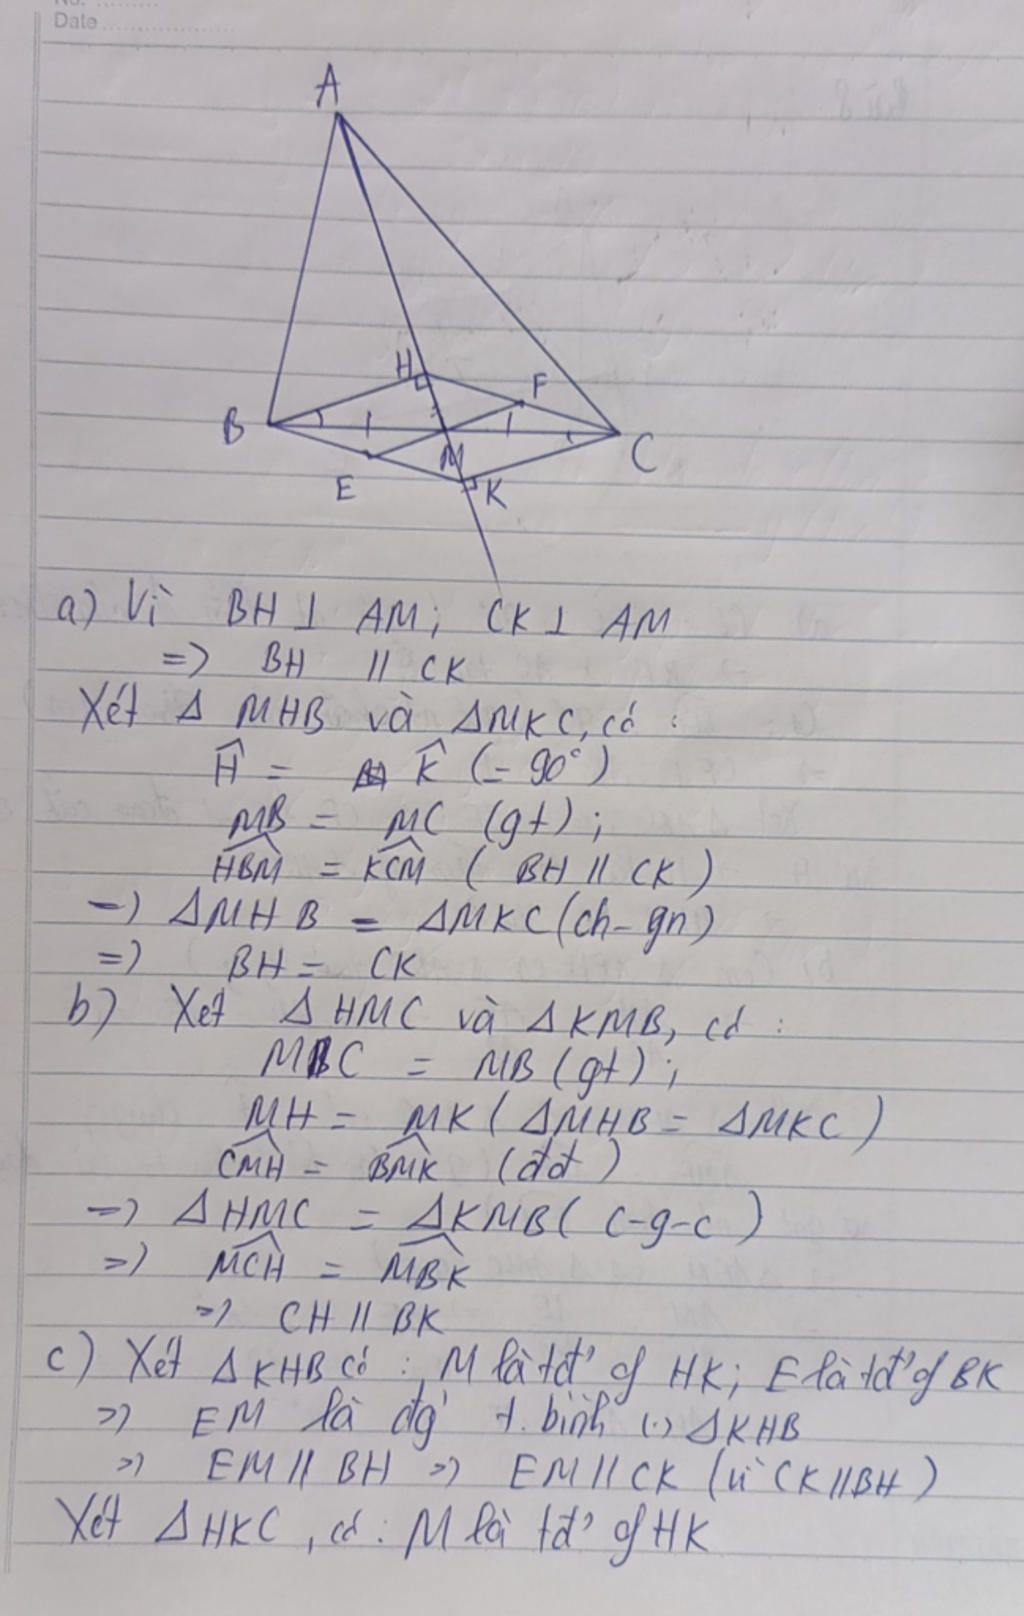 No. ........
Date ....................
A
H
F
B
M
C
E
K
a) Vì BH ⊥ AM; CK ⊥ AM
=> BH // CK
Xét Δ MHB và ΔMKC, có :
Ĥ = K̂ (= 90°)
MB = MC (gt) ;
\widehat{HBM} = \widehat{KCM} ( BH // CK )
=> ΔMHB = ΔMKC (ch-gn)
=> BH = CK
b) Xét ΔHMC và ΔKMB, có :
MC = MB (gt) ;
MH = MK ( ΔMHB = ΔMKC )
\widehat{CMH} = \widehat{BMK} (đđ)
=> ΔHMC = ΔKMB ( c-g-c )
=> \widehat{MCH} = \widehat{MBK}
=> CH // BK
c) Xét ΔKHB có : M là tđ' of HK; E là tđ' of BK
=> EM là đg' t. bình (.) ΔKHB
=> EM // BH => EM // CK (vì CK // BH)
Xét ΔHKC, có : M là tđ' of HK